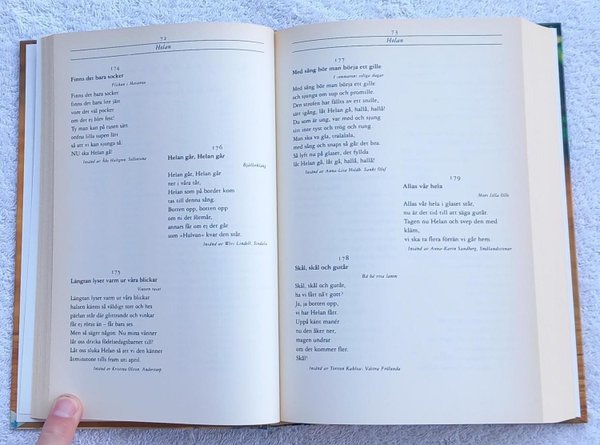 72
Helan
174
Finns det bara socker
Flickan i Havanna
Finns det bara socker
finns det bara lite jäst
vore det väl pocker
om det ej blev fest!
Ty man kan på runen sätt
ordna lilla supen lätt
så att vi kan sjunga så.
NU ska Helan gå!
Insänd av Åke Hultgren, Sollentuna
176
Helan går, Helan går
Bjällerklang
Helan går, Helan går
ner i våra tår,
Helan som på bordet kom
tas till denna sång.
Botten opp, botten opp
om ni det förmår,
annars får om ej en gång
som »Halvan« kvar den står.
Insänd av Wivi Lindell,
175
Längtan lyser varm ur våra blickar
Vintern rasat
Längtan lyser varm ur våra blickar
halsen känns så väldigt torr och hes
pärlan står där glittrande och vinkar
får ej röras än – får bara ses.
Men så säger någon: Nu mina vänner
låt oss dricka födelsedagsbarnet till!
Låt oss sluka Helan så att vi den känner
åtminstone tills fram uti april.
Insänd av Kristina Olsson, Anderstorp
73
Helan
177
Med sång bör man börja ett gille
I sommarens soliga dagar
Med sång bör man börja ett gille
och sjunga om sup och promille.
Den strofen har fallits av ett snille,
sätt igång, låt Helan gå, hallå, hallå!
Du som är ung, var med och sjung
sitt inte tyst och trög och tung.
Man ska va glå, tralalala,
med sång och snaps så går det bra.
Så lyft nu på glaset, det fyllda
låt Helan gå, låt gå, hallå, hallå!
Insänd av Anna-Lisa Sankt Olof
179
Allas vår hela
Mors lilla Olle
Allas vår hela i glaset står,
nu är det tid till att säga gutår.
Tagen nu Helan och svep den med
kläm,
vi ska ta flera förrän vi går hem.
Insänd av Anna-Karin Sandberg, Smålandsstenar
178
Skål, skål och gutår
Bä bä vita lamm
Skål, skål och gutår,
ha vi fått nå't gott?
Ja, ja botten opp,
vi har Helan fått.
Uppå känt manér
nu den åker ner,
magen undrar
om det kommer fler.
Skål!
Insänd av Torsten Västra Frölunda